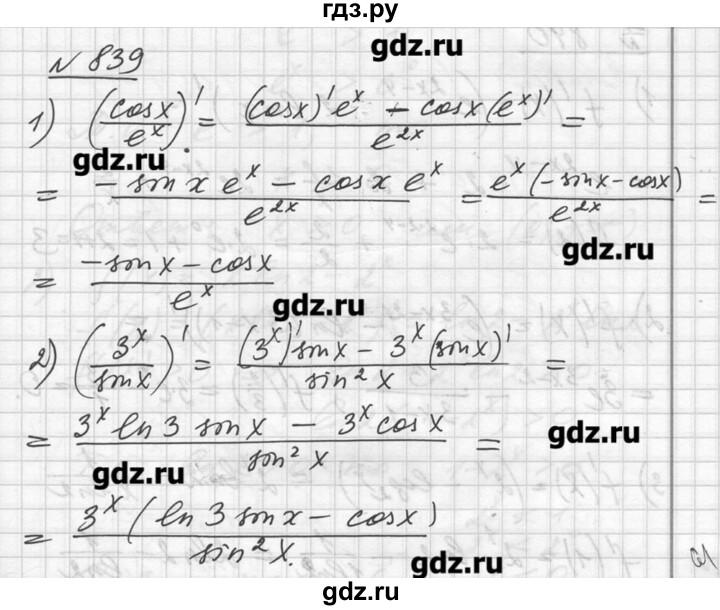 гдз.ру
gdz.ru
N 839
1) (cosx/eˣ)' = ((cosx)'eˣ - cosx(eˣ)')/e²ˣ =
gdz.ru
= (-sinx eˣ - cosx eˣ)/e²ˣ = eˣ(-sinx-cosx)/e²ˣ =
gdz.ru
= (-sinx - cosx)/eˣ
gdz.ru
2) (3ˣ/sinx)' = ((3ˣ)'sinx - 3ˣ(sinx)')/sin²x =
= (3ˣ ln3 sinx - 3ˣ cosx)/sin²x =
gdz.ru
gdz.ru
= 3ˣ(ln3 sinx - cosx)/sin²x.
gdz.ru
gdz.ru